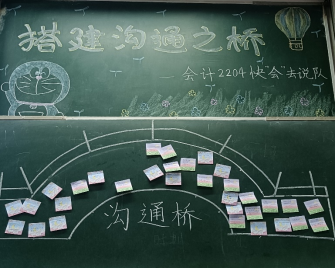 搭建沟通之桥
会计2204快"会"去说队
沟通桥